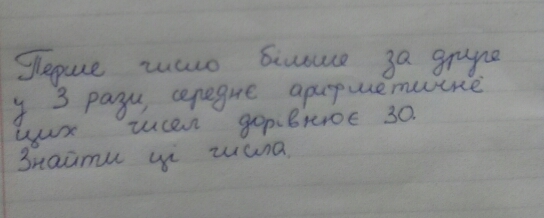 Перше число більше за друге
у 3 рази, середнє арифметичне
цих чисел дорівнює 30.
Знайти ці числа.